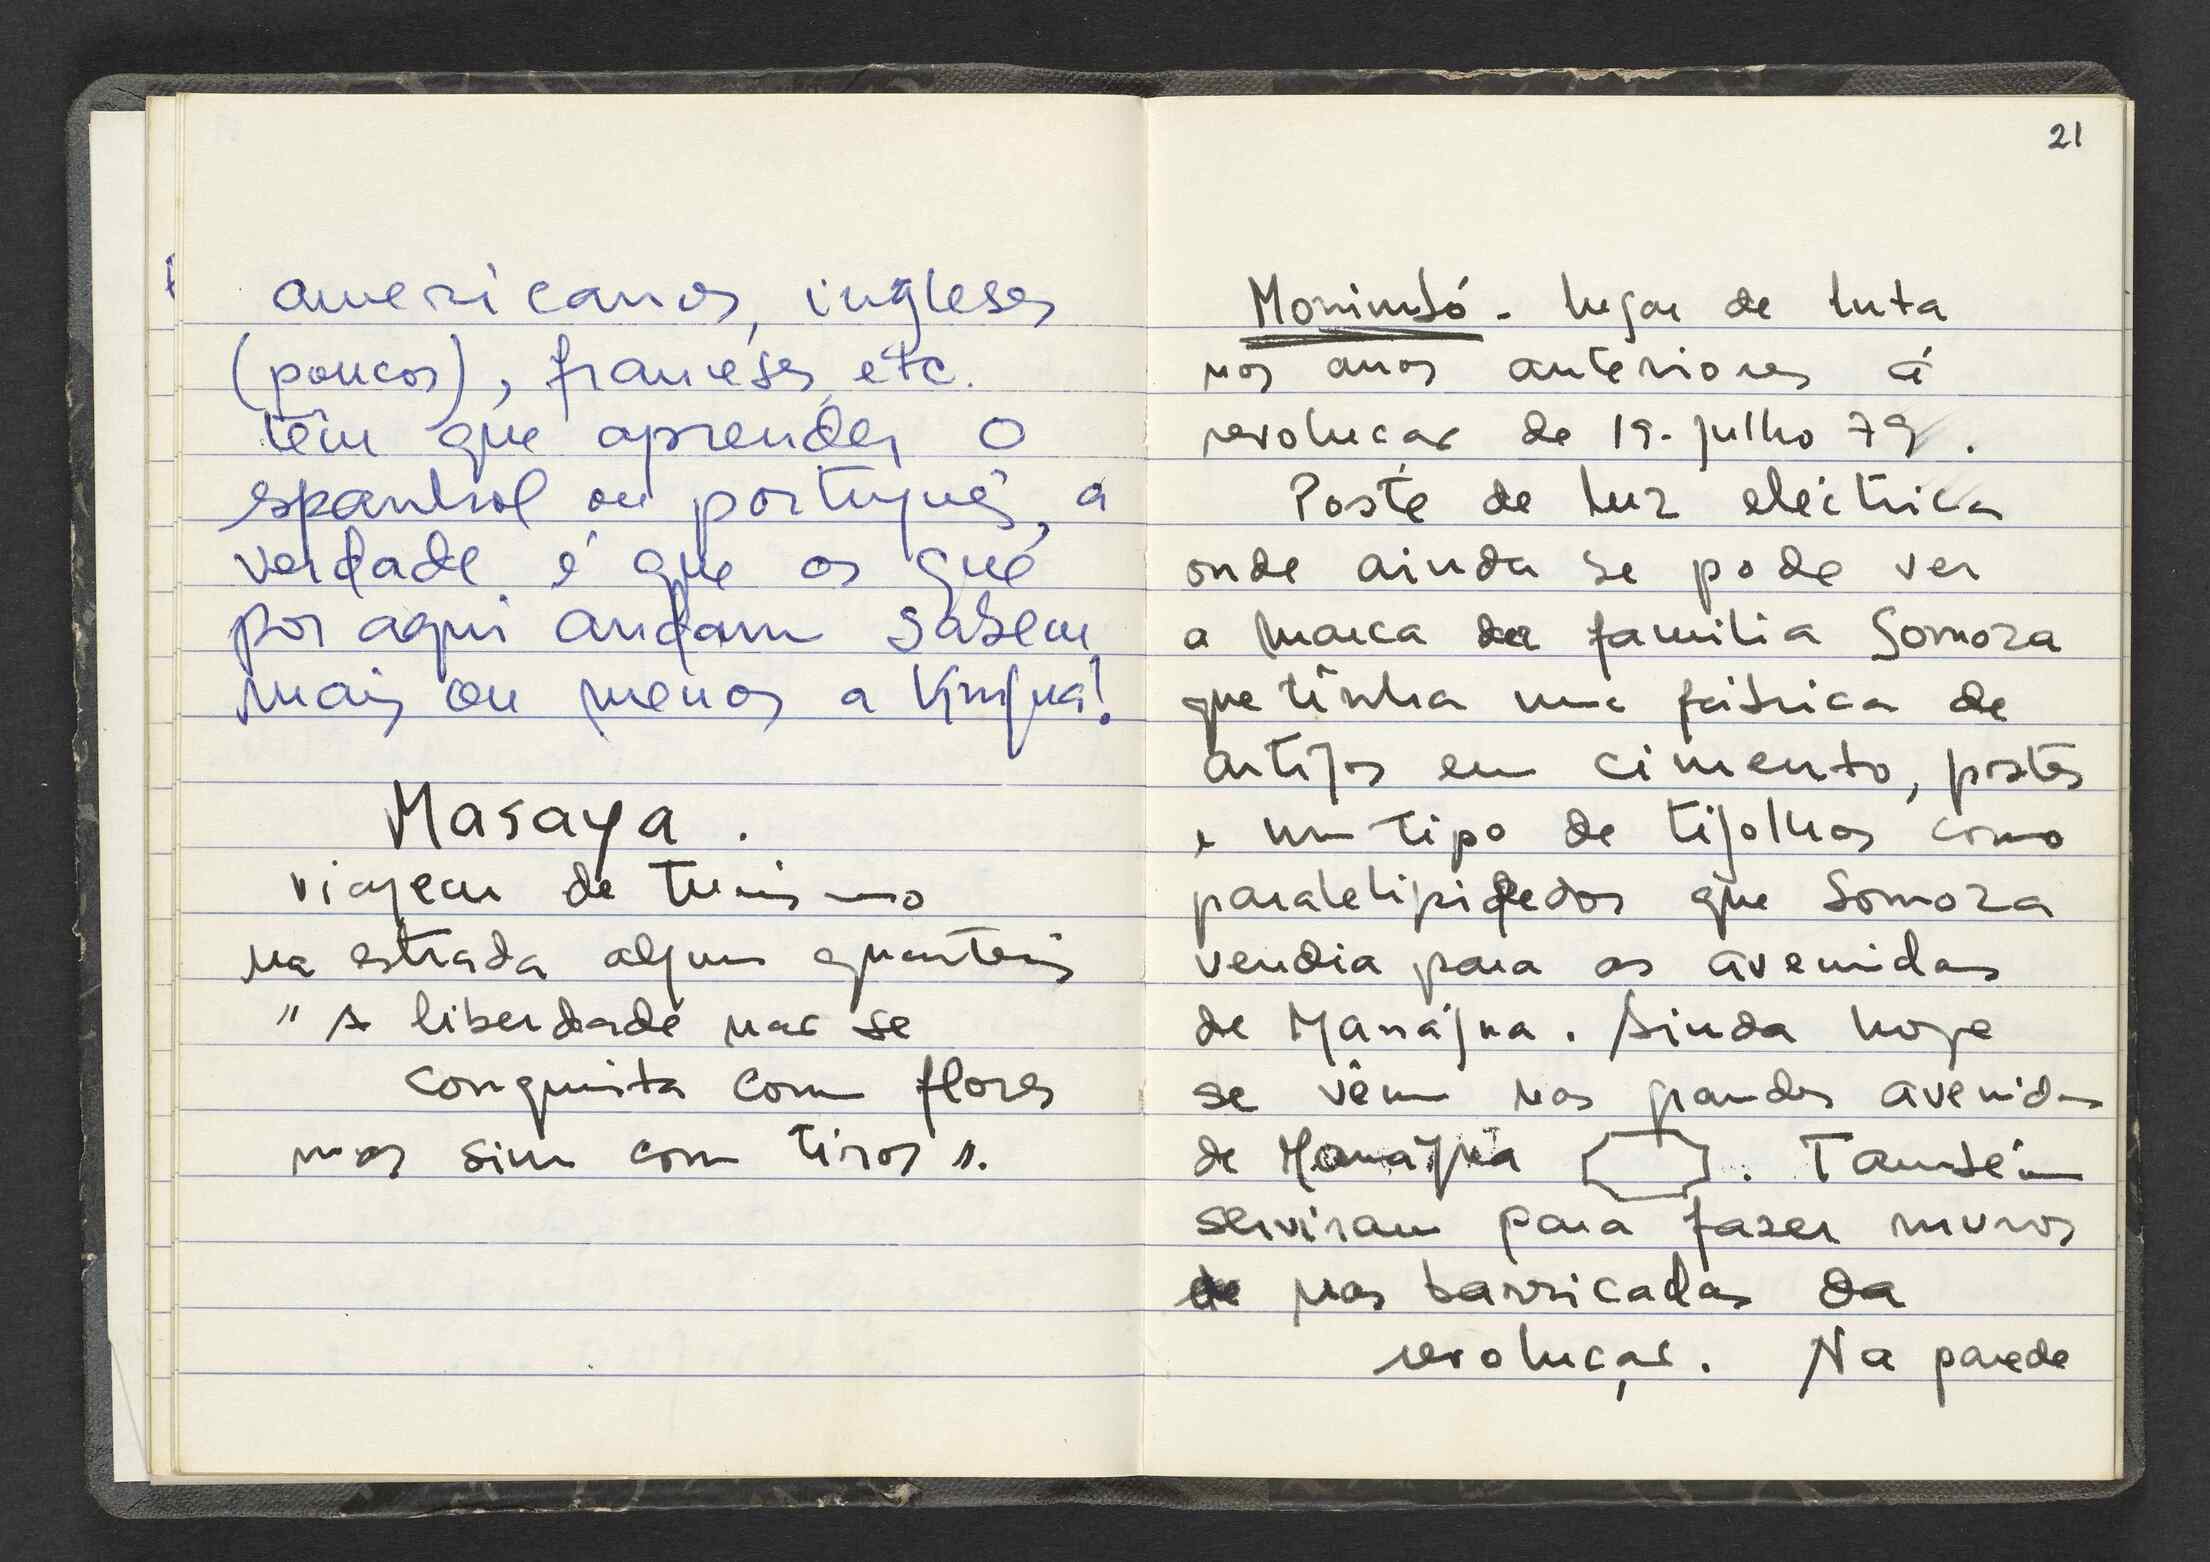 americanos, ingleses
(poucos), franceses, etc.
têm que aprender o
espanhol ou português, a
verdade é que os que
por aqui andam sabem
mais ou menos a língua!
Masaya.
viagem de turismo
na estrada algum quarteis
"A liberdade nao se
conquista com flores
mas sim com tiros".
21
Monimbó - lugar de luta
nos anos anteriores á
revolucao de 19. julho 79.
Poste de luz eléctrica
onde ainda se pode ver
a marca da familia Somoza
que tinha uma fábrica de
artigos em cimento, postes
e um tipo de tijolhos como
paralelipipedos que Somoza
vendia para as avenidas
de Manágua. Ainda hoje
se vêm nas grandes avenidas
de Manágua . Também
serviram para fazer muros
de nas barricadas da
revolução. Na parede